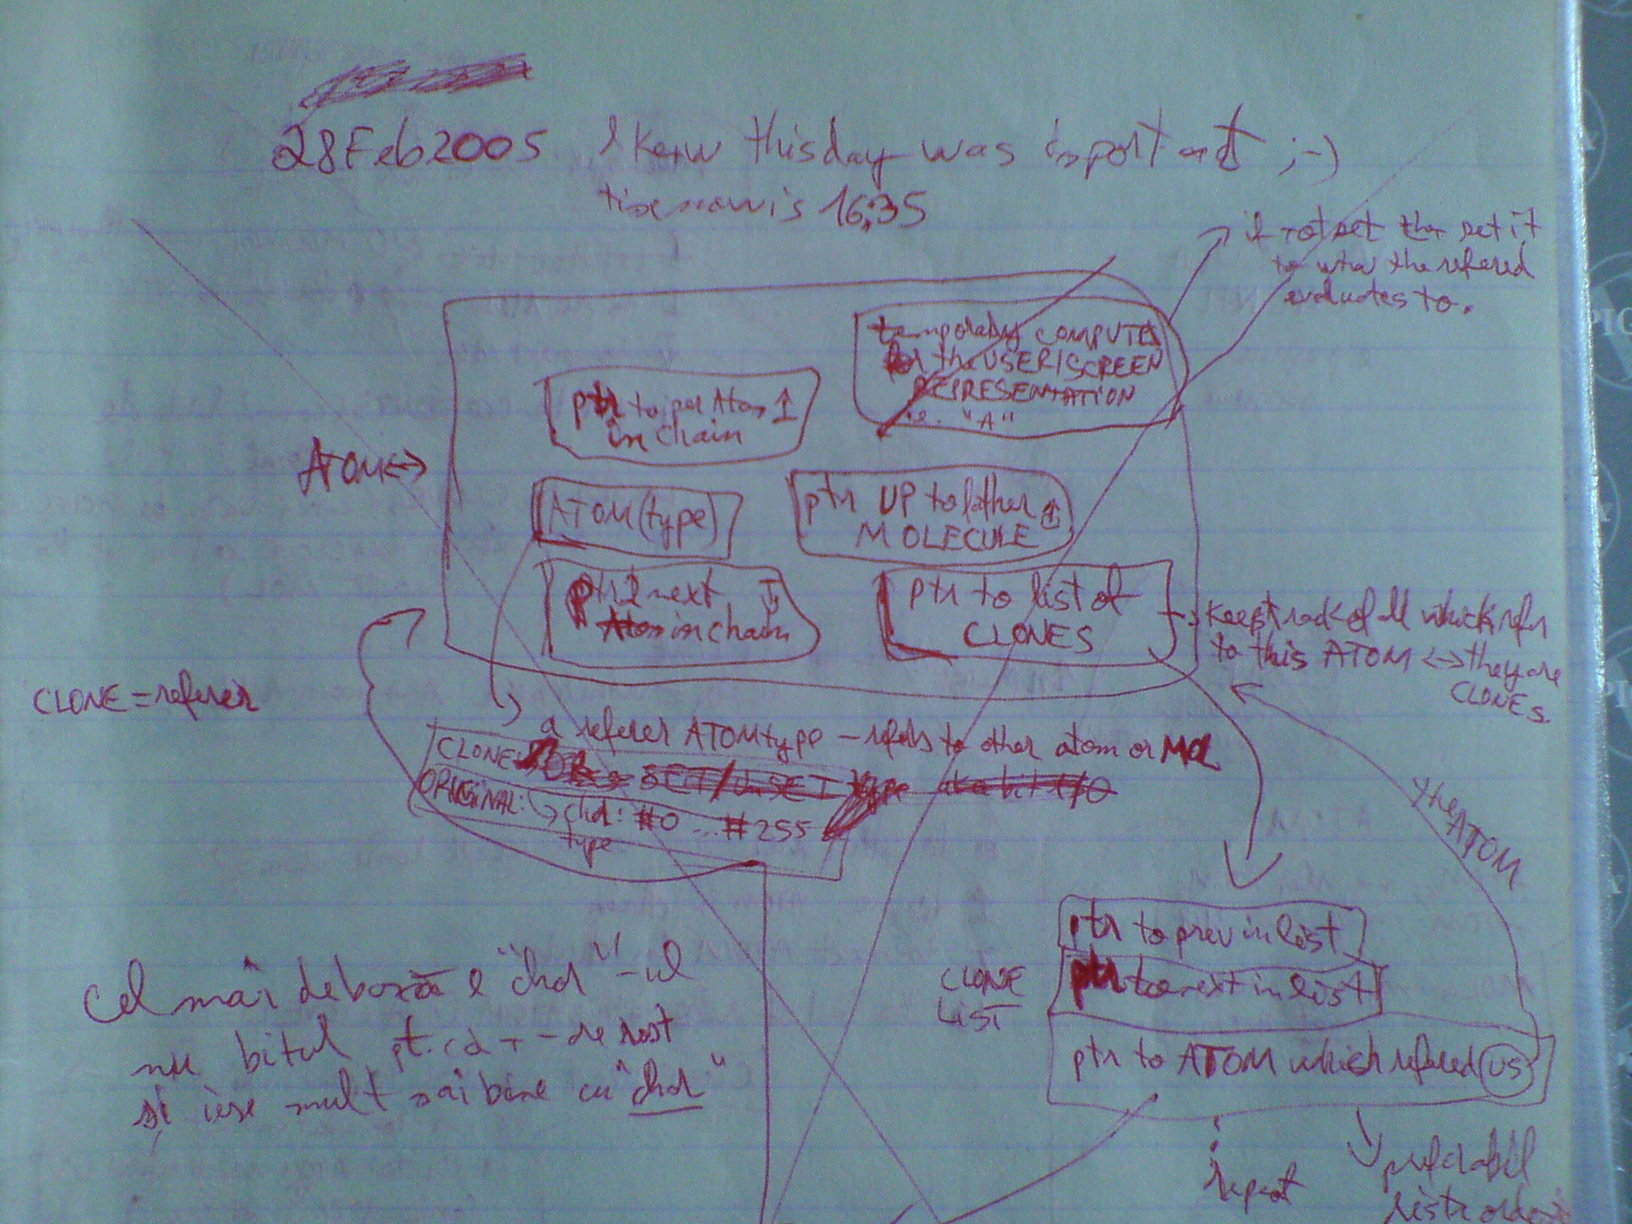 28Feb2005 I kenw this day was important ;-)
time now is 16:35
if not set then set it
to what the refered
evaluates to.
temporably COMPUTED
for the USER/SCREEN
REPRESENTATION
i.e. "A"
ptr to per Atom ↑
in chain
ATOM ↔
ATOM(type)
ptr UP to father ↑
MOLECULE
ptr 2 next ↓
Atom in chain
ptr to list of
CLONES
keep track of all which refer
to this ATOM ↔ they are
CLONES.
CLONE = referer
a referer ATOM type - refers to other atom or MOL
CLONE:
SET/UNSET type like a bit 1/0
ORIGINAL: ↳ chr: #0 ... #255
type
the ATOM
ptr to prev in list
CLONE
LIST
ptr to next in list
ptr to ATOM which refered us
Cel mai de bază e "chr"-ul
nu bitul pt. că
și iese mult mai bine cu "chr"
repeat
preferabil